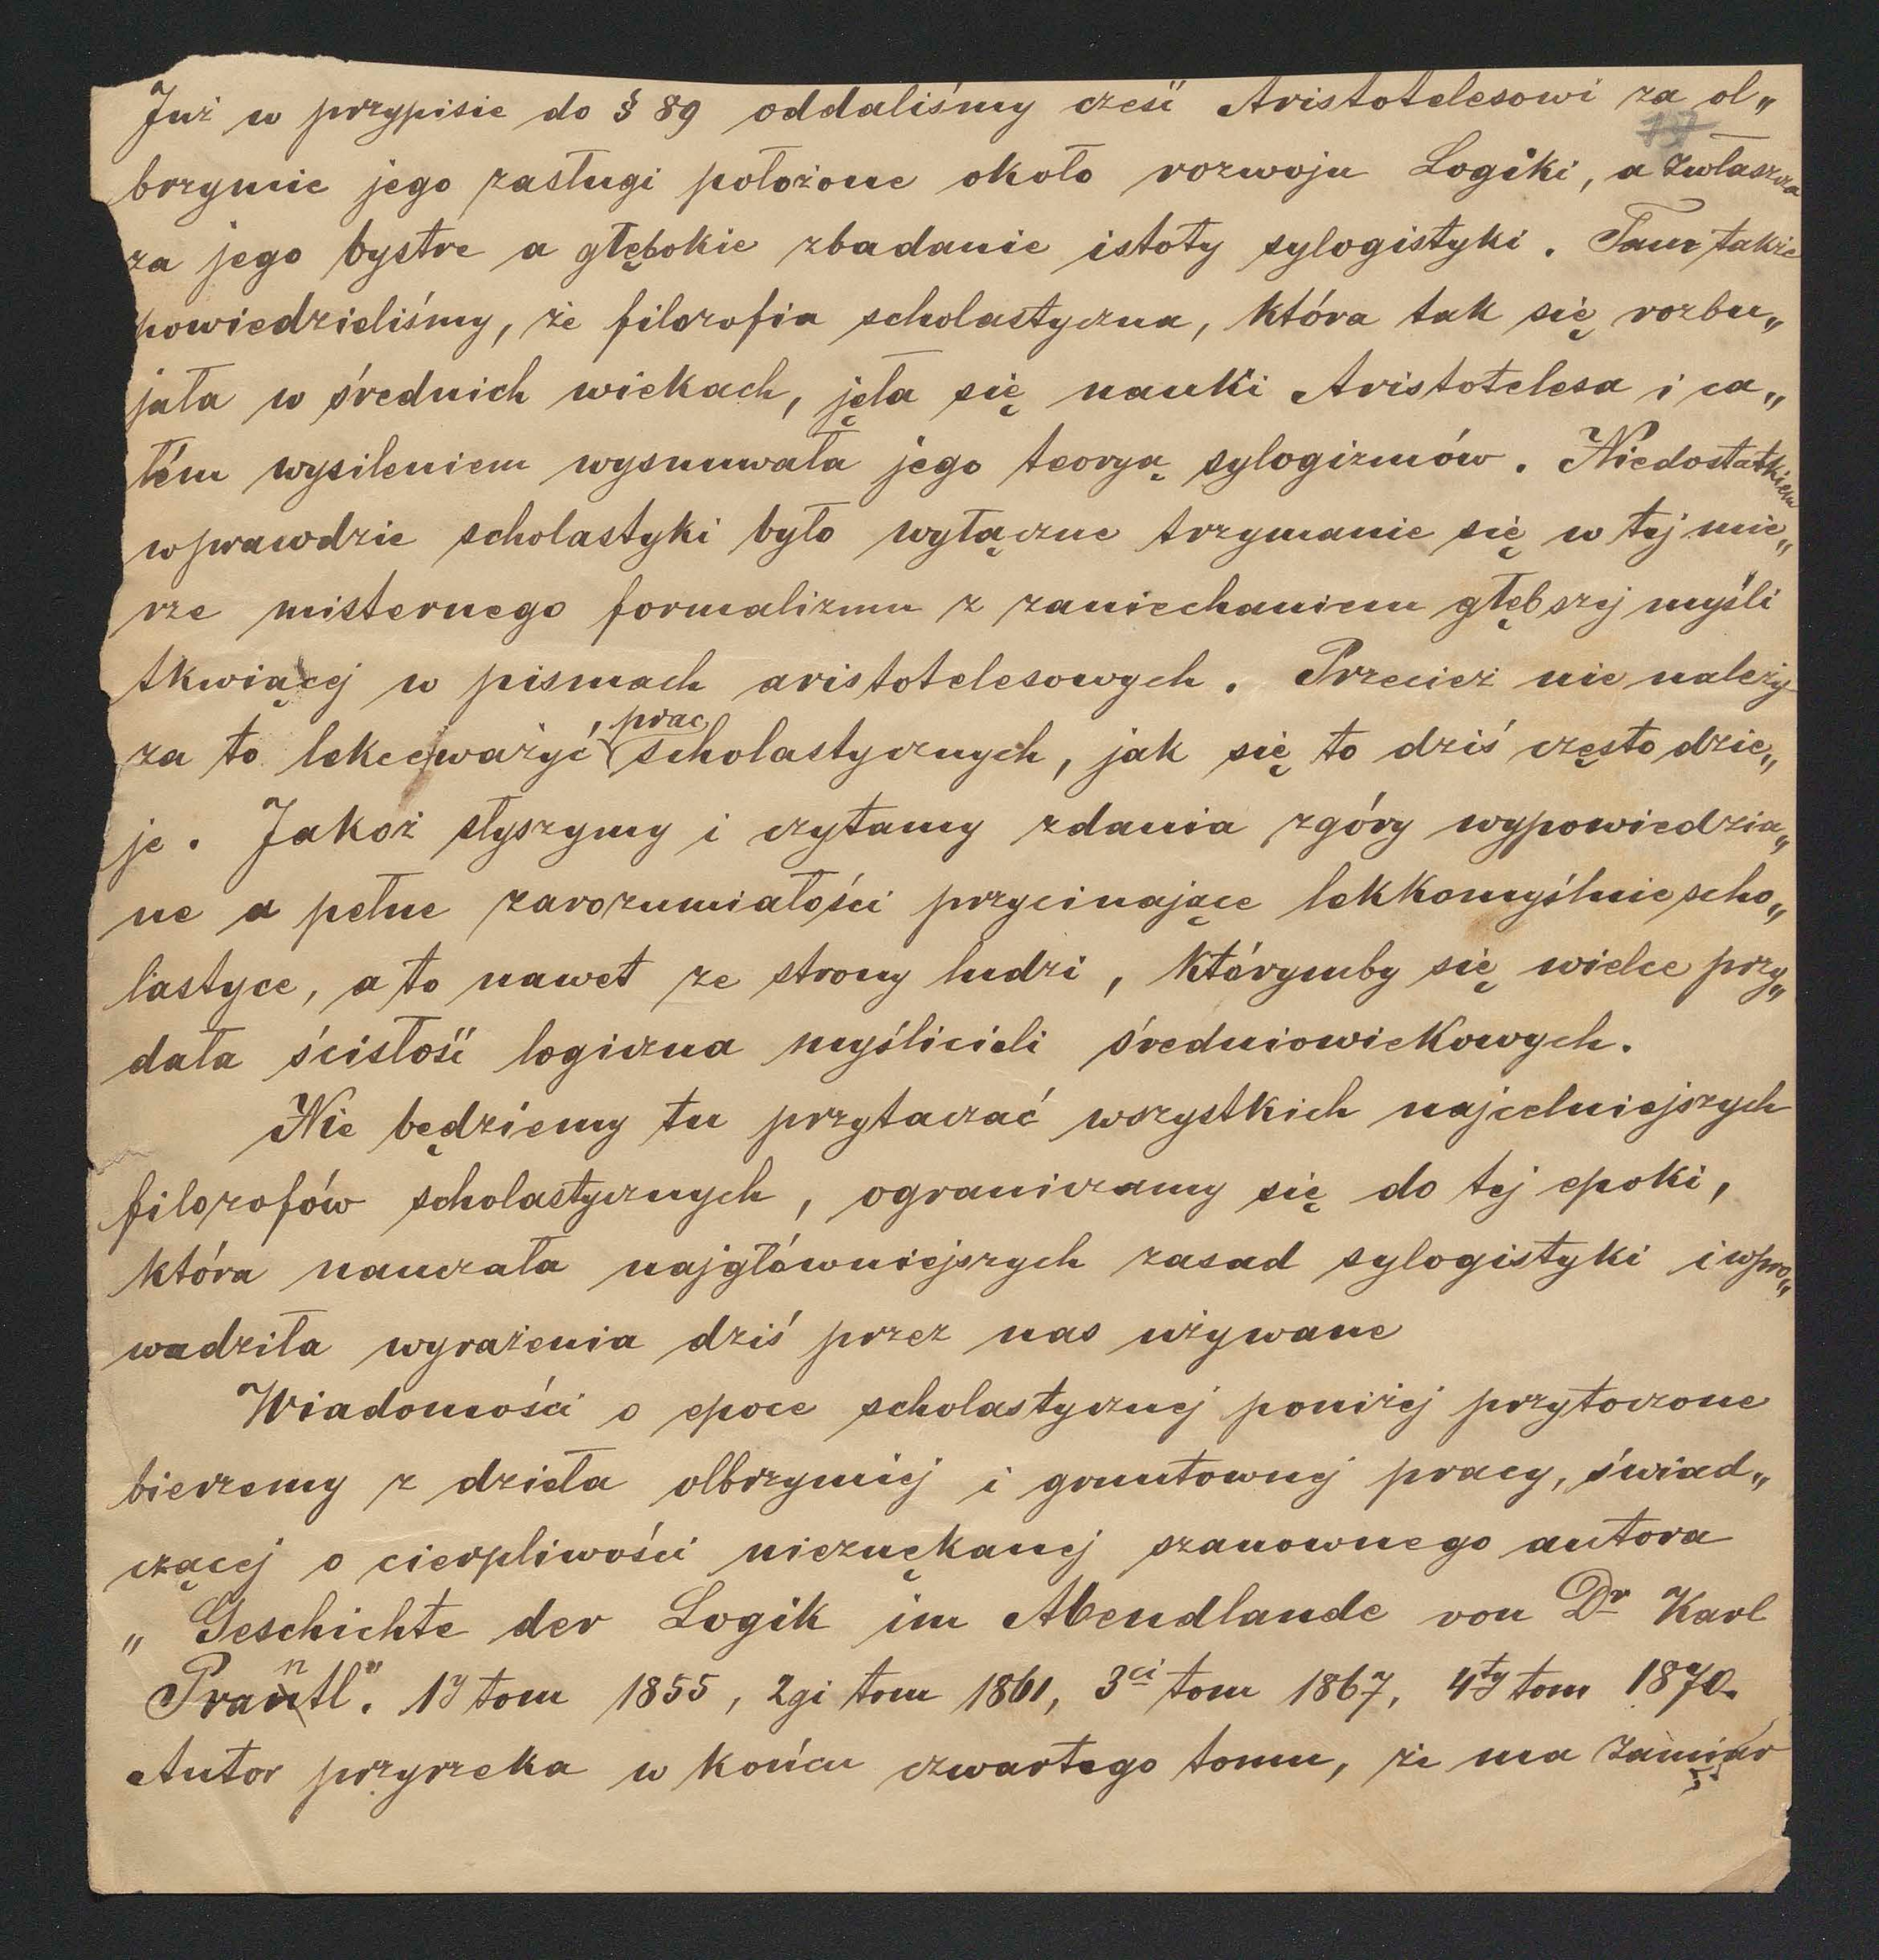 Już w przypisie do § 89 oddaliśmy cześć Aristotelesowi za ol„
brzymie jego zasługi położone około rozwoju Logiki, a zwłaszcza
za jego bystre a głębokie zbadanie istoty sylogistyki. Tam także
powiedzieliśmy, że filozofia scholastyczna, która tak się rozbu„
jała w średnich wiekach, jęła się nauki Aristotelesa i ca„
łém wysileniem wysnuwała jego teoryą sylogizmów. Niedostatkiem
wprawdzie scholastyki było wyłączne trzymanie się w tej mie„
rze misternego formalizmu z zaniechaniem głębszej myśli
tkwiącej w pismach aristotelesowych. Przecież nie należy
za to lekceważyć prac scholastycznych, jak się to dziś często dzie„
je. Jakoż słyszymy i czytamy zdania zgóry wypowiedzia„
ne a pełne zarozumiałości przycinające lekkomyślnie scho„
lastyce, a to nawet ze strony ludzi, którymby się wielce przy„
dała ścisłość logiczna myślicieli średniowiekowych.
Nie będziemy tu przytaczać wszystkich najcelniejszych
filozofów scholastycznych, ograniczamy się do tej epoki,
która nauczała najgłówniejszych zasad sylogistyki i wpro„
wadziła wyrażenia dziś przez nas używane
Wiadomości o epoce scholastycznej poniżej przytoczone
bierzemy z dzieła olbrzymiej i gruntownej pracy, świad„
czącej o cierpliwości nieznękanej szanownego autora
„Geschichte der Logik im Abendlande von Dr Karl
Prantl". 1y tom 1855, 2gi tom 1861, 3ci tom 1867, 4ty tom 1870.
Autor przyrzeka w końcu czwartego tomu, że ma zamiar